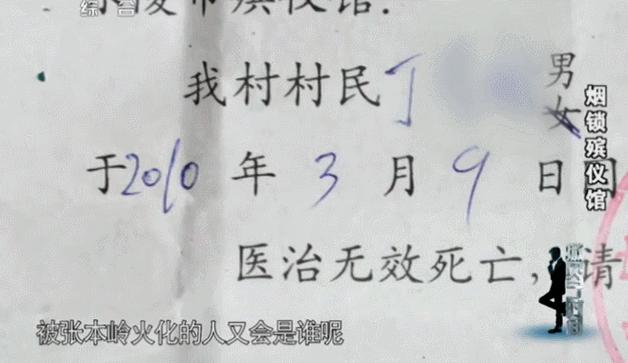 综合
殡仪馆：
我村村民丁 男
女
于2010年3月9日因
医治无效死亡，请
烟锁殡仪馆
被张本岭火化的人又会是谁呢